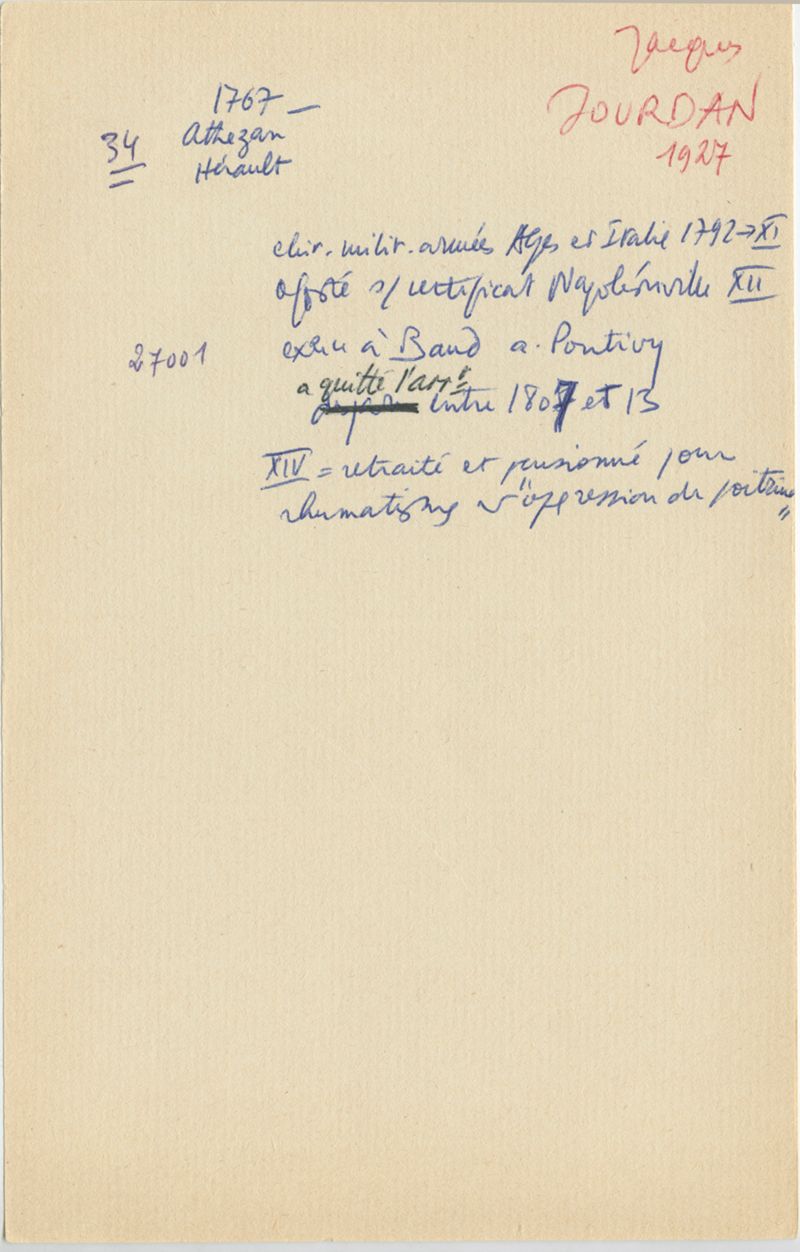 Jacques
JOURDAN
1927
1767 –
Athezan
Hérault
34
chir. milit. armées Alpes et Italie 1792 → XI
s/ certificat Napoléonville XII
27001
exerce à Baud a. Pontivy
a quitté l'arrt
entre 1807 et 13
XIV = retraité et pensionné pour
rhumatisme et "oppression de poitrine"